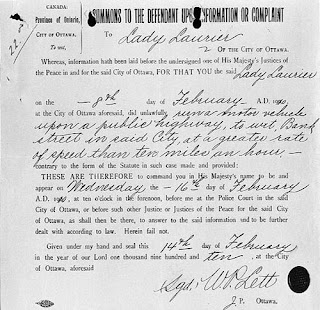 CANADA:
Province of Ontario,
CITY OF OTTAWA.
To wit,
22-8
SUMMONS TO THE DEFENDANT UPON INFORMATION OR COMPLAINT
To Lady Laurier
OF THE CITY OF OTTAWA.
Whereas, information hath been laid before the undersigned one of His Majesty's Justices of
the Peace in and for the said City of Ottawa, FOR THAT YOU the said Lady Laurier
on the 8th day of February A.D. 1910,
at the City of Ottawa aforesaid, did unlawfully run a motor vehicle
upon a public highway, to wit, Bank
street in said City at a greater rate
of speed than ten miles an hour,
contrary to the form of the Statute in such case made and provided:
THESE ARE THEREFORE to command you in His Majesty's name to be and
appear on Wednesday the 16th day of February
A.D. 1910, at ten o'clock in the forenoon, before me at the Police Court in the said
City of Ottawa, or before such other Justice or Justices of the Peace for the said City
of Ottawa, as shall then be there, to answer to the said information and to be further
dealt with according to law. Herein fail not.
Given under my hand and seal this 14th day of February
in the year of our Lord one thousand nine hundred and ten, at the City
of Ottawa, aforesaid
Sgd: W.P. Lett
J.P. Ottawa.